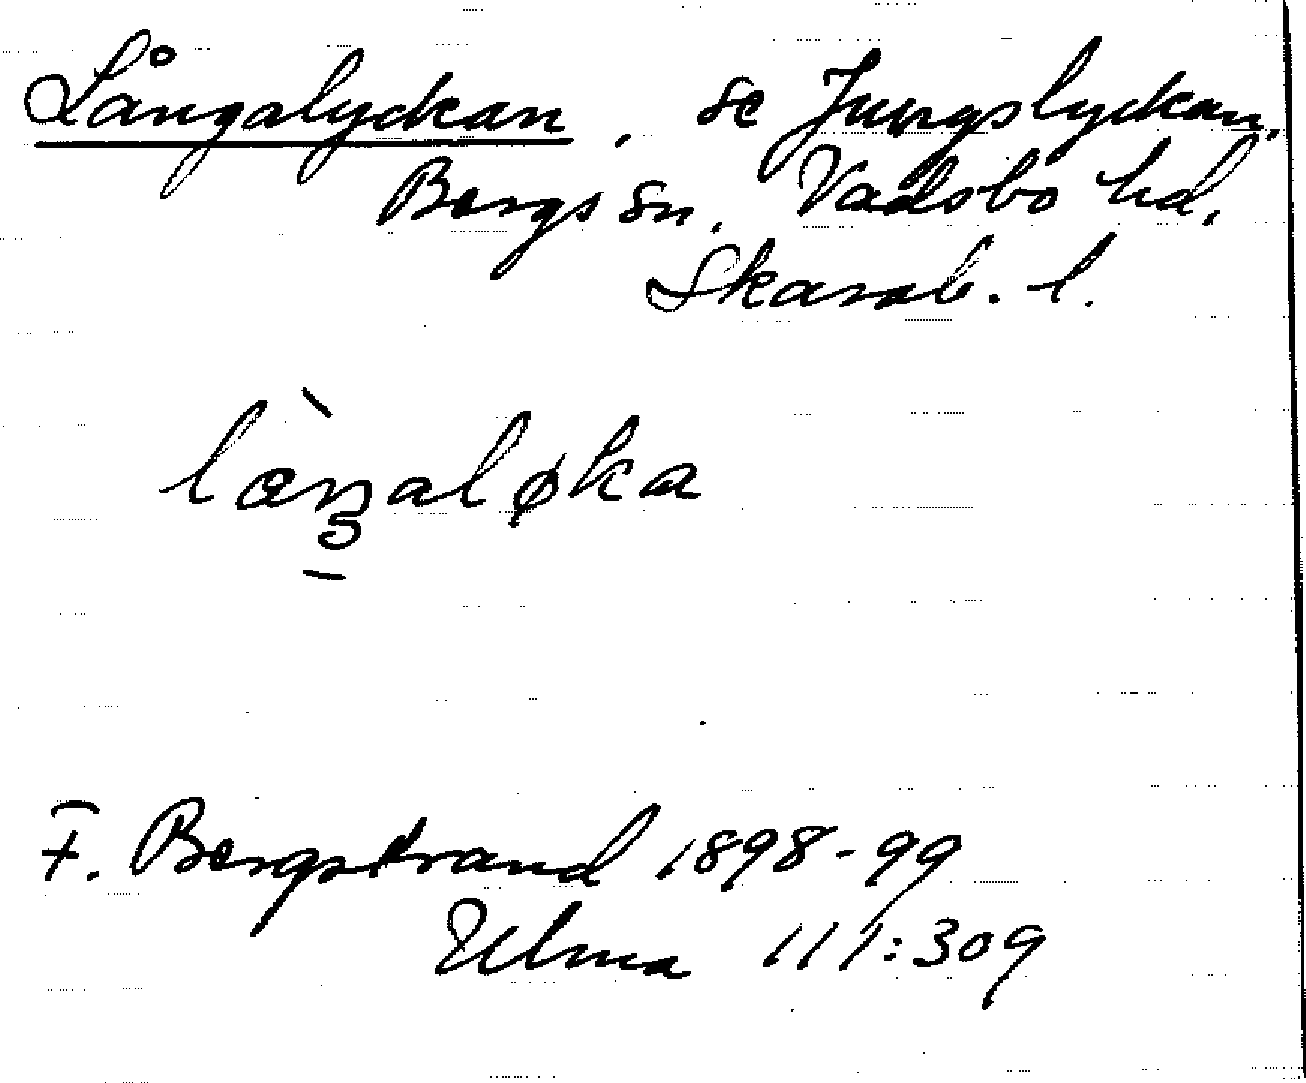 Långalyckan, se Jungslyckan,
Bergs sn, Vadsbo hd,
Skarab. l.
lœ̀ŋaløka
F. Bergstrand 1898-99
Ulma 111:309